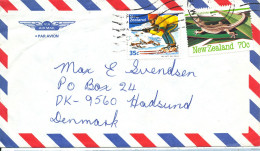 PAR AVION
New Zealand
35c
New Zealand 70c
Max E Svendsen
PO Box 24
DK-9560 Hadsund
Denmark